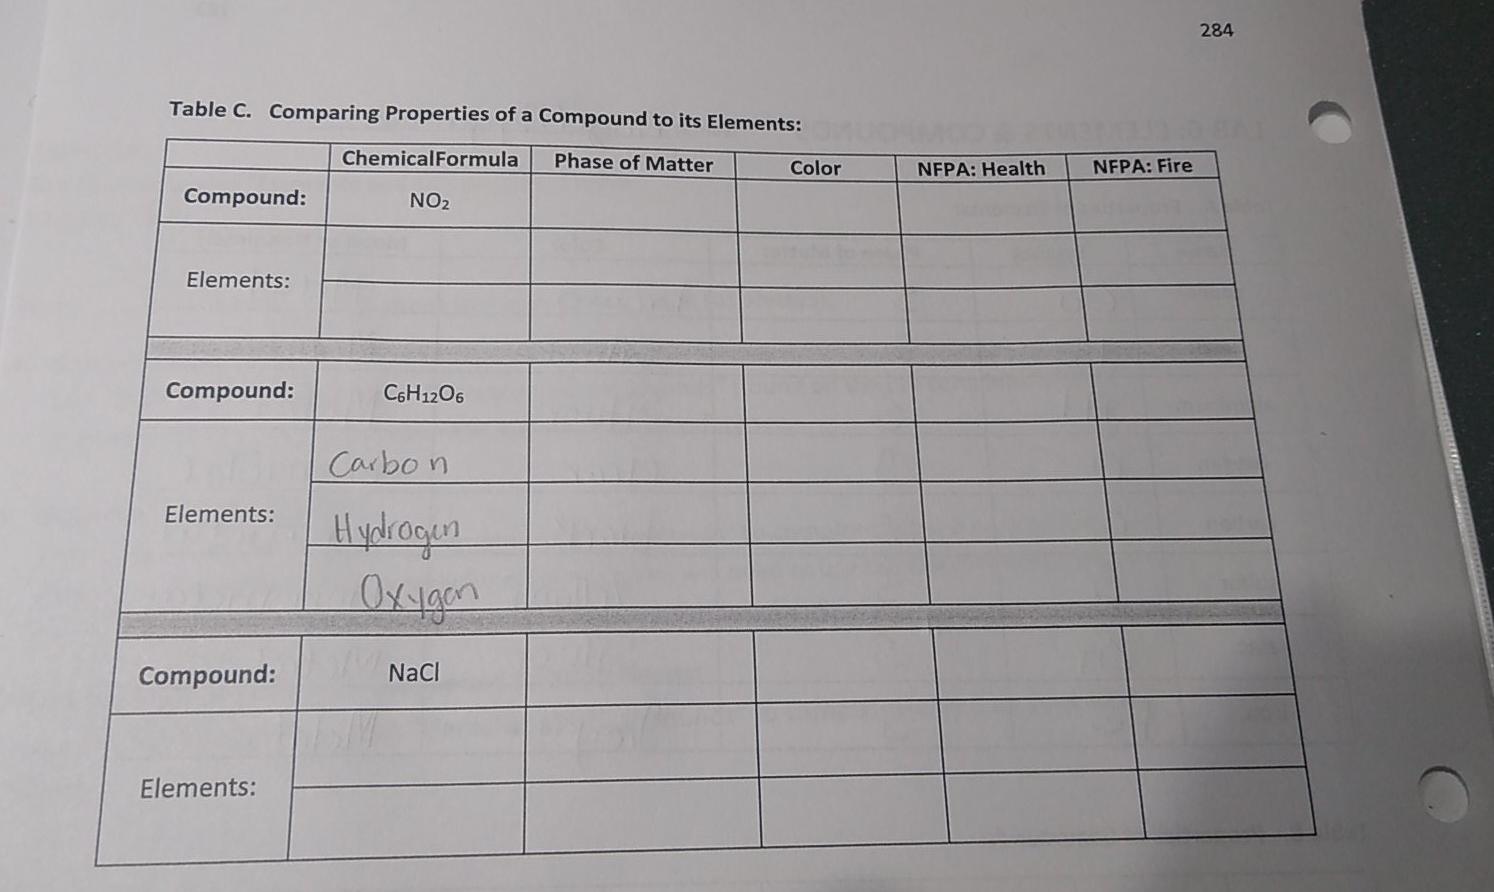 284
Table C. Comparing Properties of a Compound to its Elements:
ChemicalFormula Phase of Matter Color NFPA: Health NFPA: Fire
Compound: NO₂
Elements:
Compound: C₆H₁₂O₆
Carbon
Elements:
Hydrogen
Oxygen
Compound: NaCl
Elements: